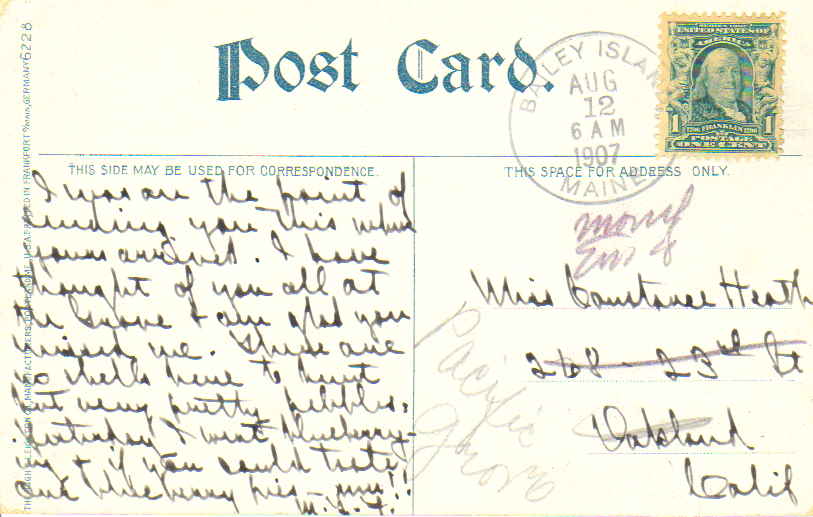 Post Card.
BAILEY ISLAND
AUG
12
6 AM
1907
MAINE
UNITED STATES OF
AMERICA
1 FRANKLIN 1
POSTAGE
ONE CENT
THIS SIDE MAY BE USED FOR CORRESPONDENCE.
THIS SPACE FOR ADDRESS ONLY.
I was on the point of
sending you this when
yours arrived. I have
thought of you all at
the Grove & am glad you
missed me. There are
no shells here to hunt
but very pretty pebbles.
Yesterday I went blueberry-
ing & if you could taste
our blueberry pies mm!!
Miss Constance Heath
268 - 23rd St
Oakland
Calif
Pacific
Grove
6228